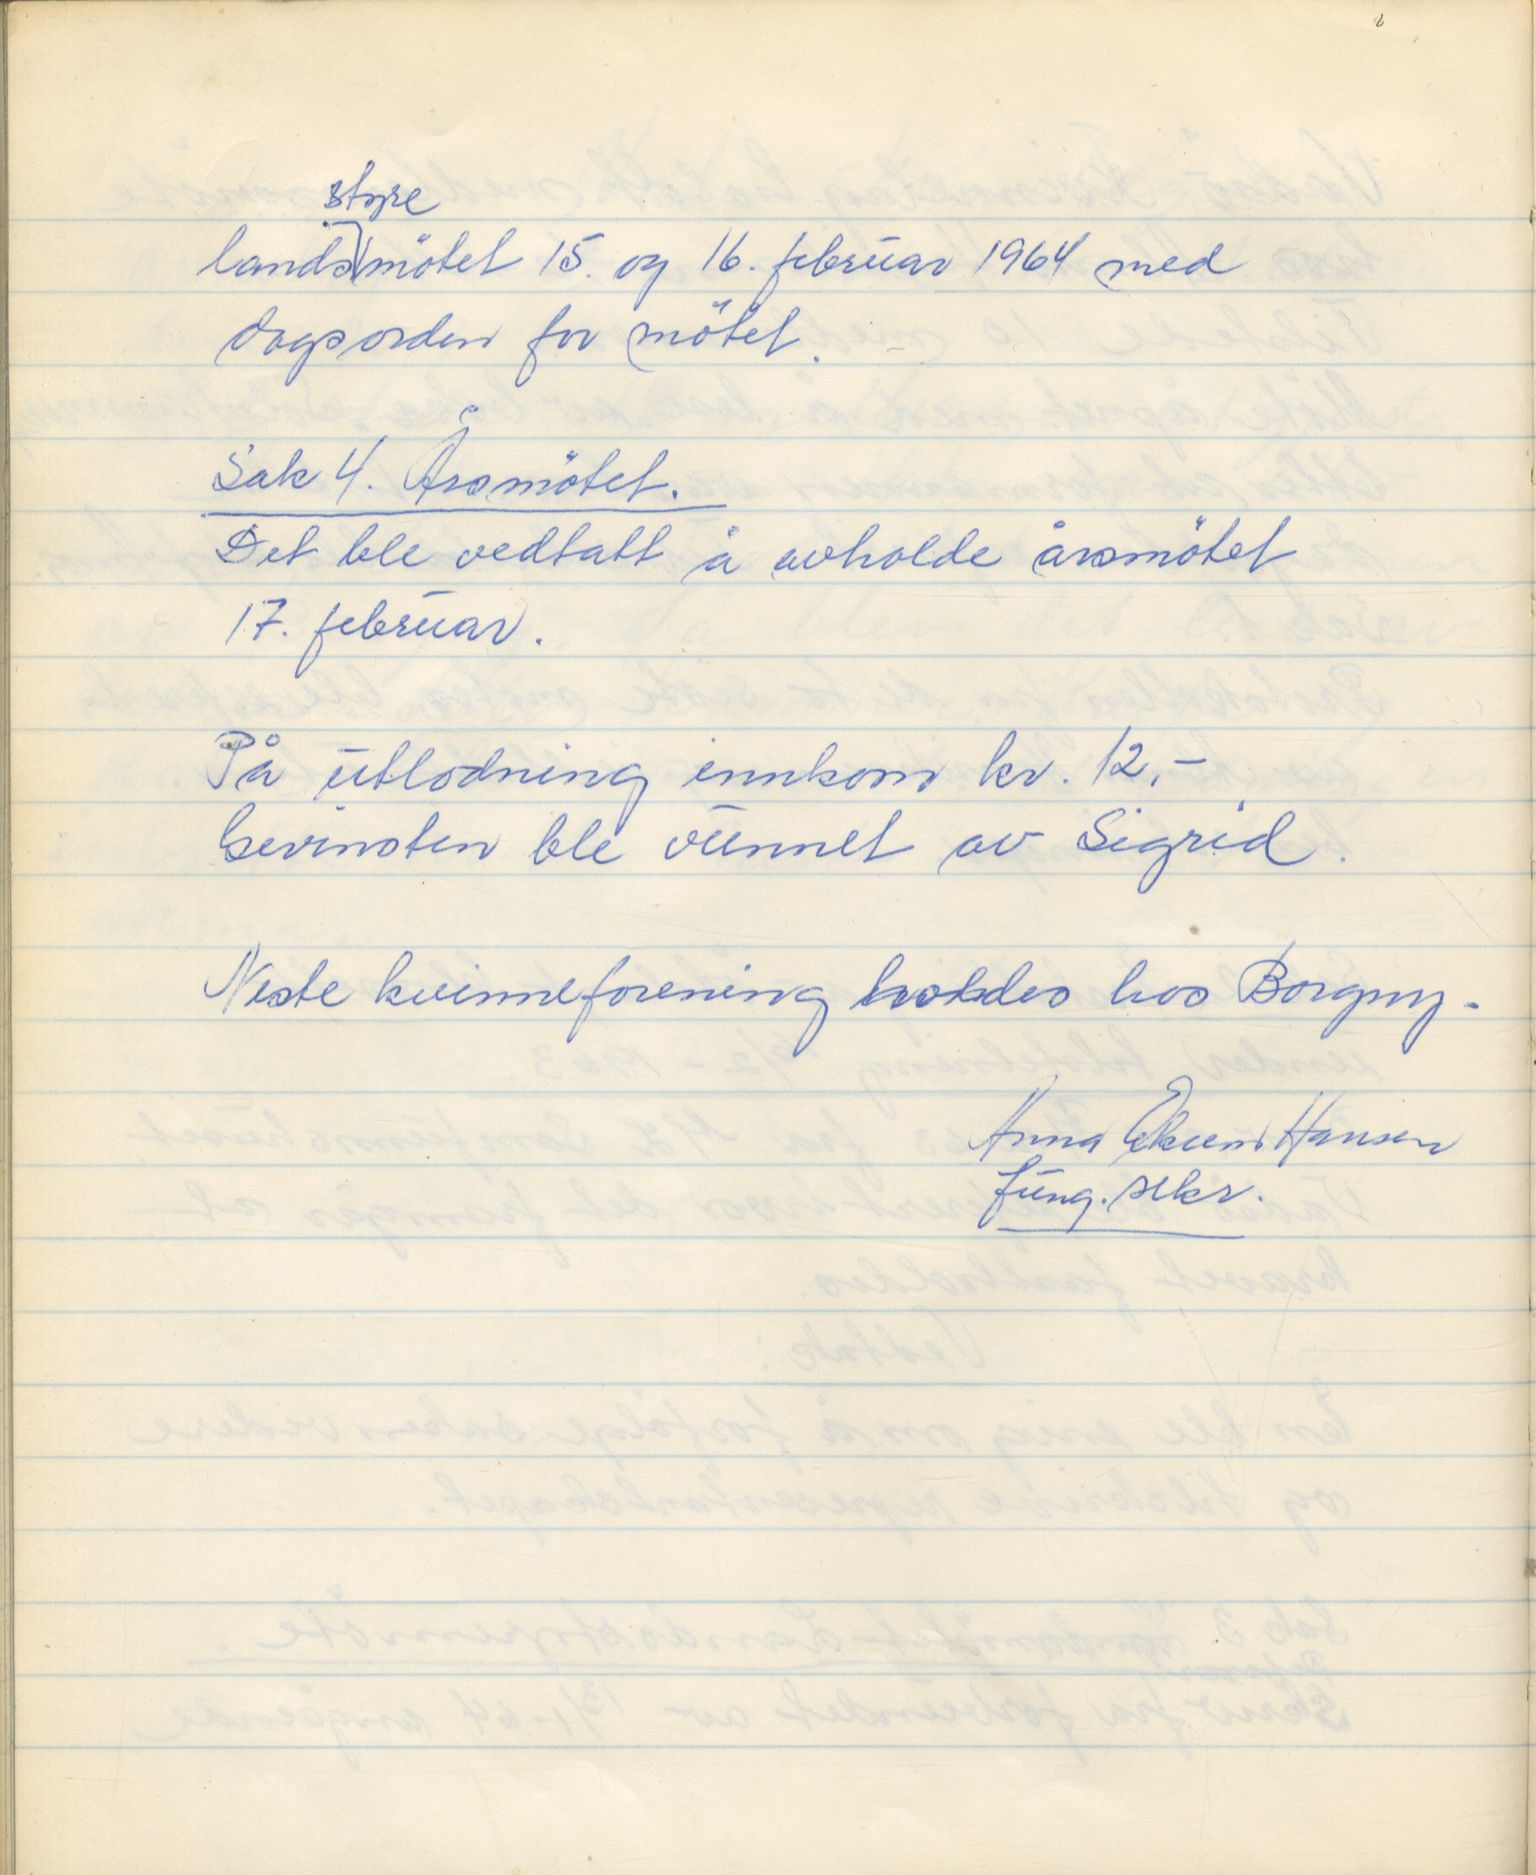 styre
landsmötet 15. og 16. februar 1964 med
dagsorden for mötet.
Sak 4. Årsmötet.
Det ble vedtatt å avholde årsmötet
17. februar.
På utlodning innkom kr. 12,-
Gevinsten ble vunnet av Sigrid.
Neste kvinneforening holdes hos Borgny.
Anna Ekren Hansen
fung. sekr.